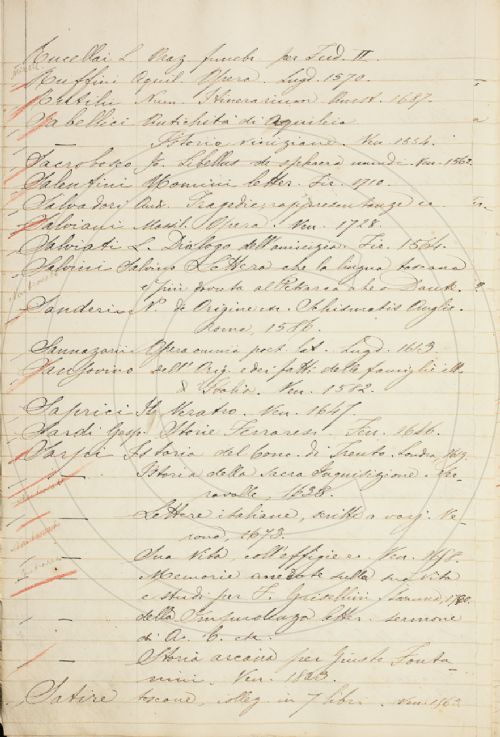 Rucellai L. Oraz. funebr. per Fed. II.
Ruffini Aquil. Opera. Lugd. 1570.
Rutilii Num. Itinerarium. Amst. 1687.
Sabellici Antichità di Aquileia
— Istorie viniziane. Ven. 1554.
Sacrobosco Jo. Libellus de sphaera mundi. Ven. 1562.
Salentini Homini letter. Fir. 1710.
Salvadori And. Tragedie, rappresentanze ec
Salviani Massil. Opera. Ven. 1728.
Salviati L. Dialogo dell'amicizia. Fir. 1564.
Salvini Salvino Lettera che la lingua toscana
è più dovuta al Petrarca che a Dante. ?
Sanderi N. De Origine ec. Schismatis Anglic.
Romae, 1586.
Sannazarii Opera omnia post. lat. Lugd. 1603
Sansovino dell' Orig. e dei fatti delle famiglie ill.
d'Italia. Ven. 1582.
Saprici Ste. Ven. 1647.
Sardi Gasp. Storie Ferraresi. Fer. 1646.
Sarpi Istoria del Conc. di Trento. Londra, 1619.
— Istoria della sacra Inquisizione.
ravalle, 1638.
— Lettere italiane, scritte a varj. Ve
rona, 1673.
— Sua Vita coll'effigie ec. Ven.
— Memorie anedote sulla sua vita
e studi per F. Griselini. Losana, 1760.
della Impudenza letter. sermone
di A. C. ec.
— Storia arcana per Giusto Fonta
nini. Ven. 1803.
Satire toscane, colleg. in 7 libri. Ven. 1563